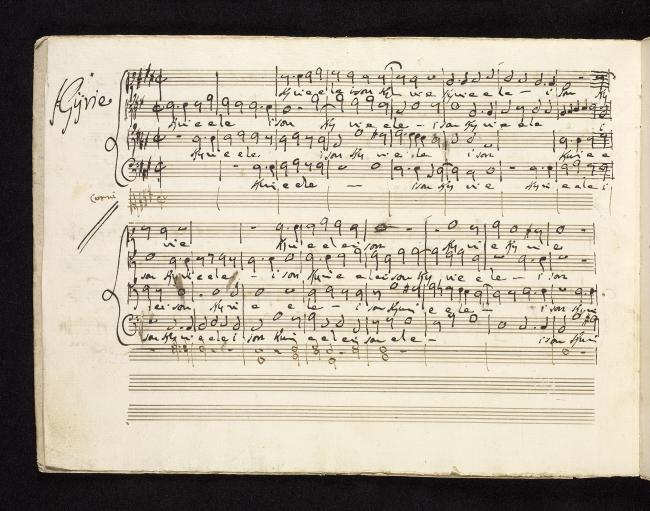 Kÿrie
Kyrie eleison Ky rie Kyrie ele - i son Ky
Kyrie ele ison Ky rie ele - ison Kyrie ele
Kyrie ele ison Ky rie ele ison Kyrie e
Kyrie ele - ison Ky rie Kyrie elei
Corni
rie Kyrie eleison Kyrie Kyrie
son Kyrie ele - ison Kyrie eleison Ky rie ele - ison
leison Kyrie ele - ison Kyrie ele - ison Kyrie
son Kyrie elei son Kyrie eleison ele - ison Kyri